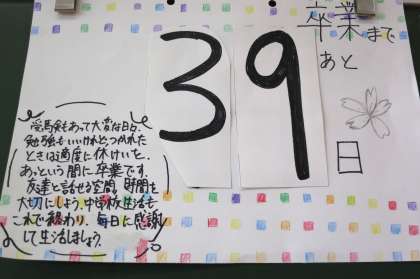 卒業まで
あと
39
日
受験もあって大変な日々。
勉強もいいけれど、つかれた
ときは適度に休けいを。
あっという間に卒業です。
友達と話せる空間、時間も
大切にしよう。中学校生活も
これで終わり、毎日に感謝
して生活しましょう。